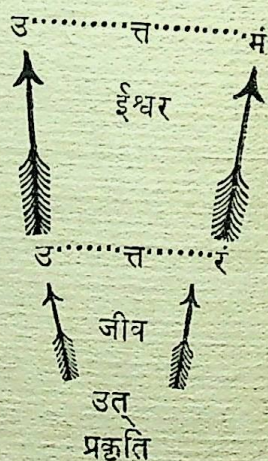 उ············त्त············मं
ईश्वर
उ·········त्त·········रं
जीव
उत्
प्रकृति